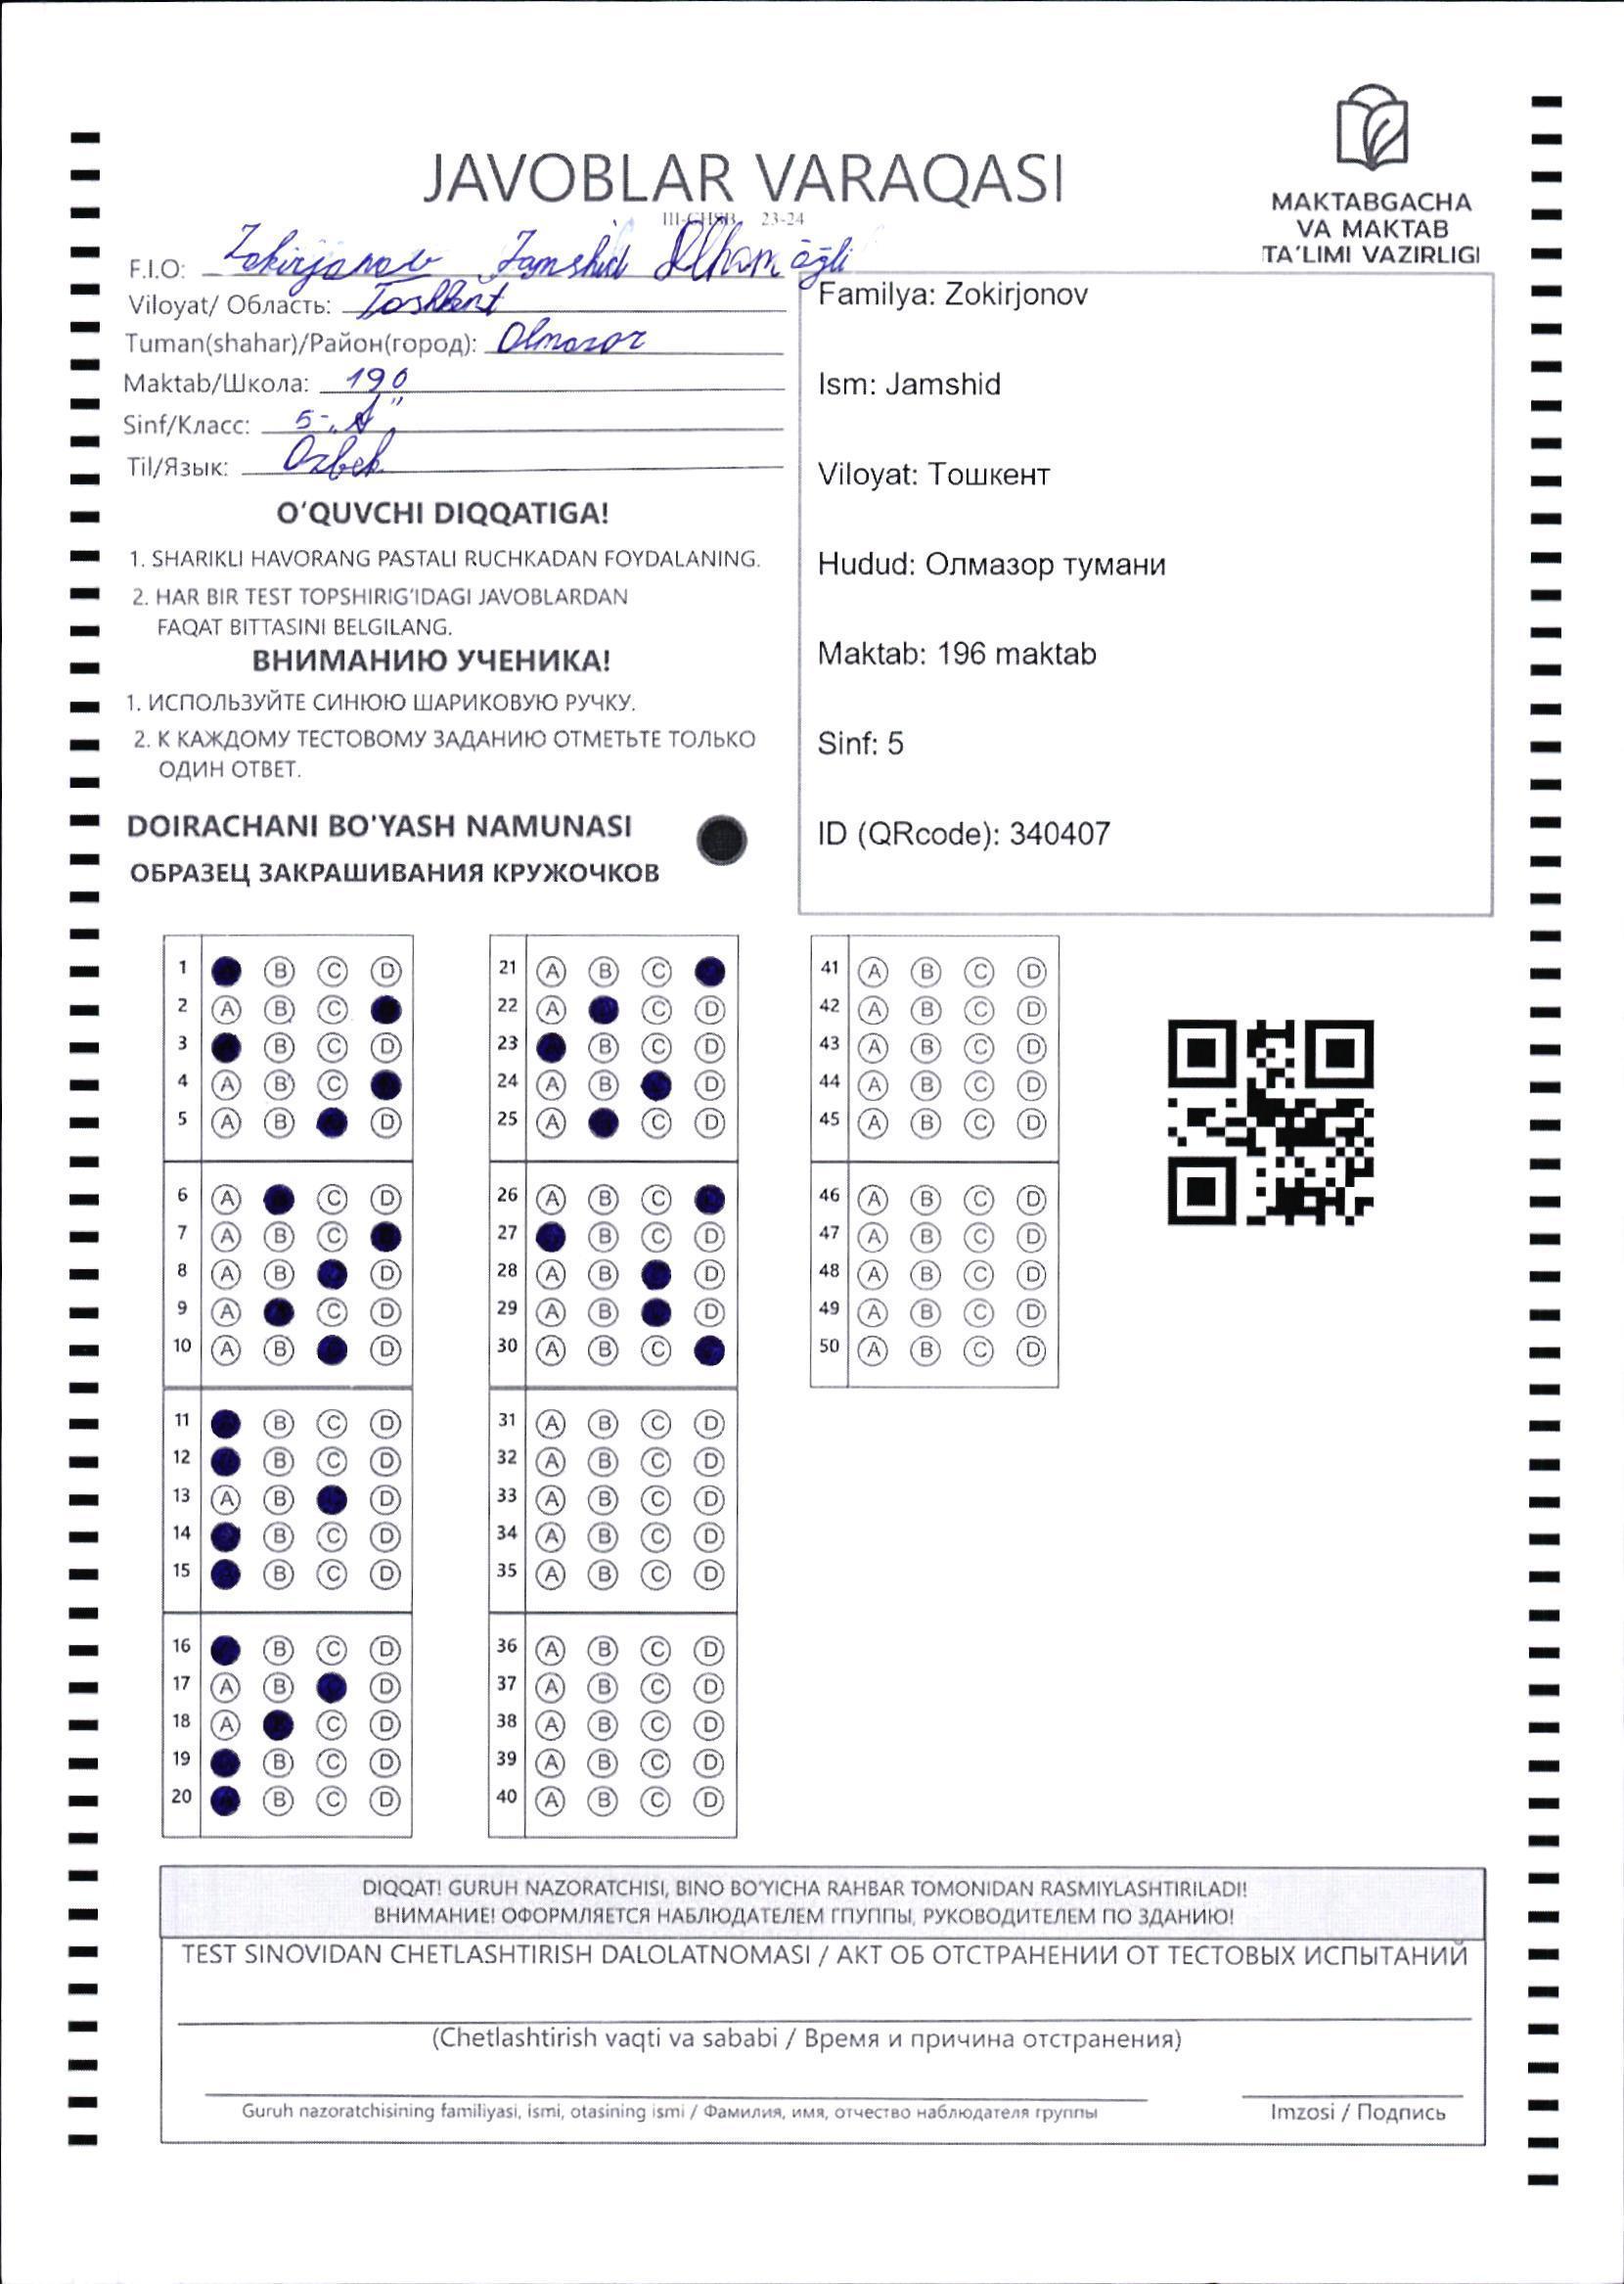 JAVOBLAR VARAQASI
III-CHSB 23-24
MAKTABGACHA
VA MAKTAB
TA'LIMI VAZIRLIGI
F.I.O: Zokirjonov Jamshid Ilhom o'g'li
Viloyat/ Область: Toshkent
Tuman(shahar)/Район(город): Olmazor
Maktab/Школа: 196
Sinf/Класс: 5-„A"
Til/Язык: Ozbek
Familya: Zokirjonov
Ism: Jamshid
Viloyat: Тошкент
Hudud: Олмазор тумани
Maktab: 196 maktab
Sinf: 5
ID (QRcode): 340407
O'QUVCHI DIQQATIGA!
1. SHARIKLI HAVORANG PASTALI RUCHKADAN FOYDALANING.
2. HAR BIR TEST TOPSHIRIG'IDAGI JAVOBLARDAN
FAQAT BITTASINI BELGILANG.
ВНИМАНИЮ УЧЕНИКА!
1. ИСПОЛЬЗУЙТЕ СИНЮЮ ШАРИКОВУЮ РУЧКУ.
2. К КАЖДОМУ ТЕСТОВОМУ ЗАДАНИЮ ОТМЕТЬТЕ ТОЛЬКО
ОДИН ОТВЕТ.
DOIRACHANI BO'YASH NAMUNASI
ОБРАЗЕЦ ЗАКРАШИВАНИЯ КРУЖОЧКОВ
1 B C D
2 A B C
3 B C D
4 A B C
5 A B D
6 A C D
7 A B C
8 A B D
9 A C D
10 A B D
11 B C D
12 B C D
13 A B D
14 B C D
15 B C D
16 B C D
17 A B D
18 A C D
19 B C D
20 B C D
21 A B C
22 A C D
23 B C D
24 A B D
25 A C D
26 A B C
27 B C D
28 A B D
29 A B D
30 A B C
31 A B C D
32 A B C D
33 A B C D
34 A B C D
35 A B C D
36 A B C D
37 A B C D
38 A B C D
39 A B C D
40 A B C D
41 A B C D
42 A B C D
43 A B C D
44 A B C D
45 A B C D
46 A B C D
47 A B C D
48 A B C D
49 A B C D
50 A B C D
DIQQAT! GURUH NAZORATCHISI, BINO BO'YICHA RAHBAR TOMONIDAN RASMIYLASHTIRILADI!
ВНИМАНИЕ! ОФОРМЛЯЕТСЯ НАБЛЮДАТЕЛЕМ ГПУППЫ, РУКОВОДИТЕЛЕМ ПО ЗДАНИЮ!
TEST SINOVIDAN CHETLASHTIRISH DALOLATNOMASI / АКТ ОБ ОТСТРАНЕНИИ ОТ ТЕСТОВЫХ ИСПЫТАНИЙ
(Chetlashtirish vaqti va sababi / Время и причина отстранения)
Guruh nazoratchisining familiyasi, ismi, otasining ismi / Фамилия, имя, отчество наблюдателя группы
Imzosi / Подпись